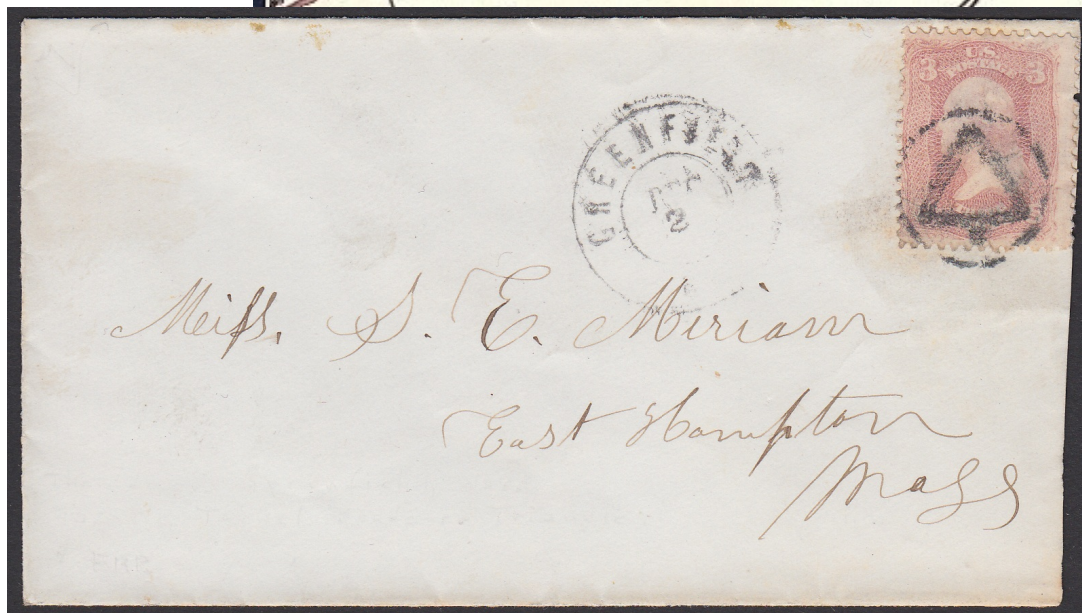 3 U.S. POSTAGE 3
GREENFIELD
2
Miss. S. E. Miriam
East Hampton
Mass